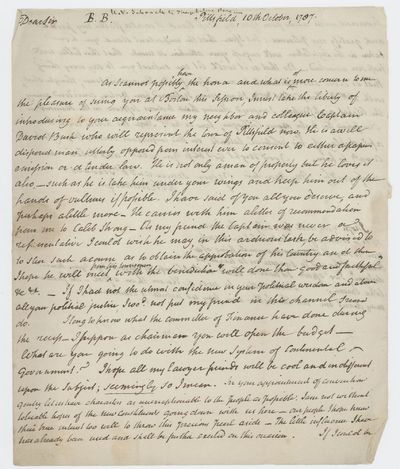 Dear Sir B. B. Pittsfield 10th October, 1787.
As I cannot possibly have the honor and what is of more concern to me
the pleasure of seeing you at Boston this Session I must take the liberty of
introducing to your acquaintance my neighbor and colleague Captain
David Bush who will represent the town of Pittsfield now. He is a well
disposed man utterly opposed from interest ever to consent to either a paper
emission or a tender law. He is not only a man of property but he loves it
also — such as he is take him under your wings and keep him out of the
hands of vultures if possible. I have said of you all you deserve, and
perhaps a little more — He carries with him a letter of recommendation
from me to Caleb Strong — As my friend the Captain was never a
representative I could wish he may in this arduous task be advised to
to steer such a course as to obtain the approbation of his Country and then
I hope he will meet with the benediction from his Constituents "well done thou good and faithful"
&c &c. — If I had not the utmost confidence in your political wisdom and above
all your political justice I wod. not put my friend in this channel
do. I long to know what the committee of Finance have done during
the recess — I suppose as chairman you will open the budget —
What are you going to do with the new System of Continental
Government? I hope all my Lawyer friends will be cool and indifferent
upon the Subject, seemingly so I mean. In your appointment of convention
gentry let their characters be unexceptionable to the people as possible. I am not without
tolerable hopes of the new constitution's going down with us here — our people I hope know
their true interest too well to throw this precious jewel aside — The little influence I have
has already been used and shall be further exerted on this occasion. If I could be